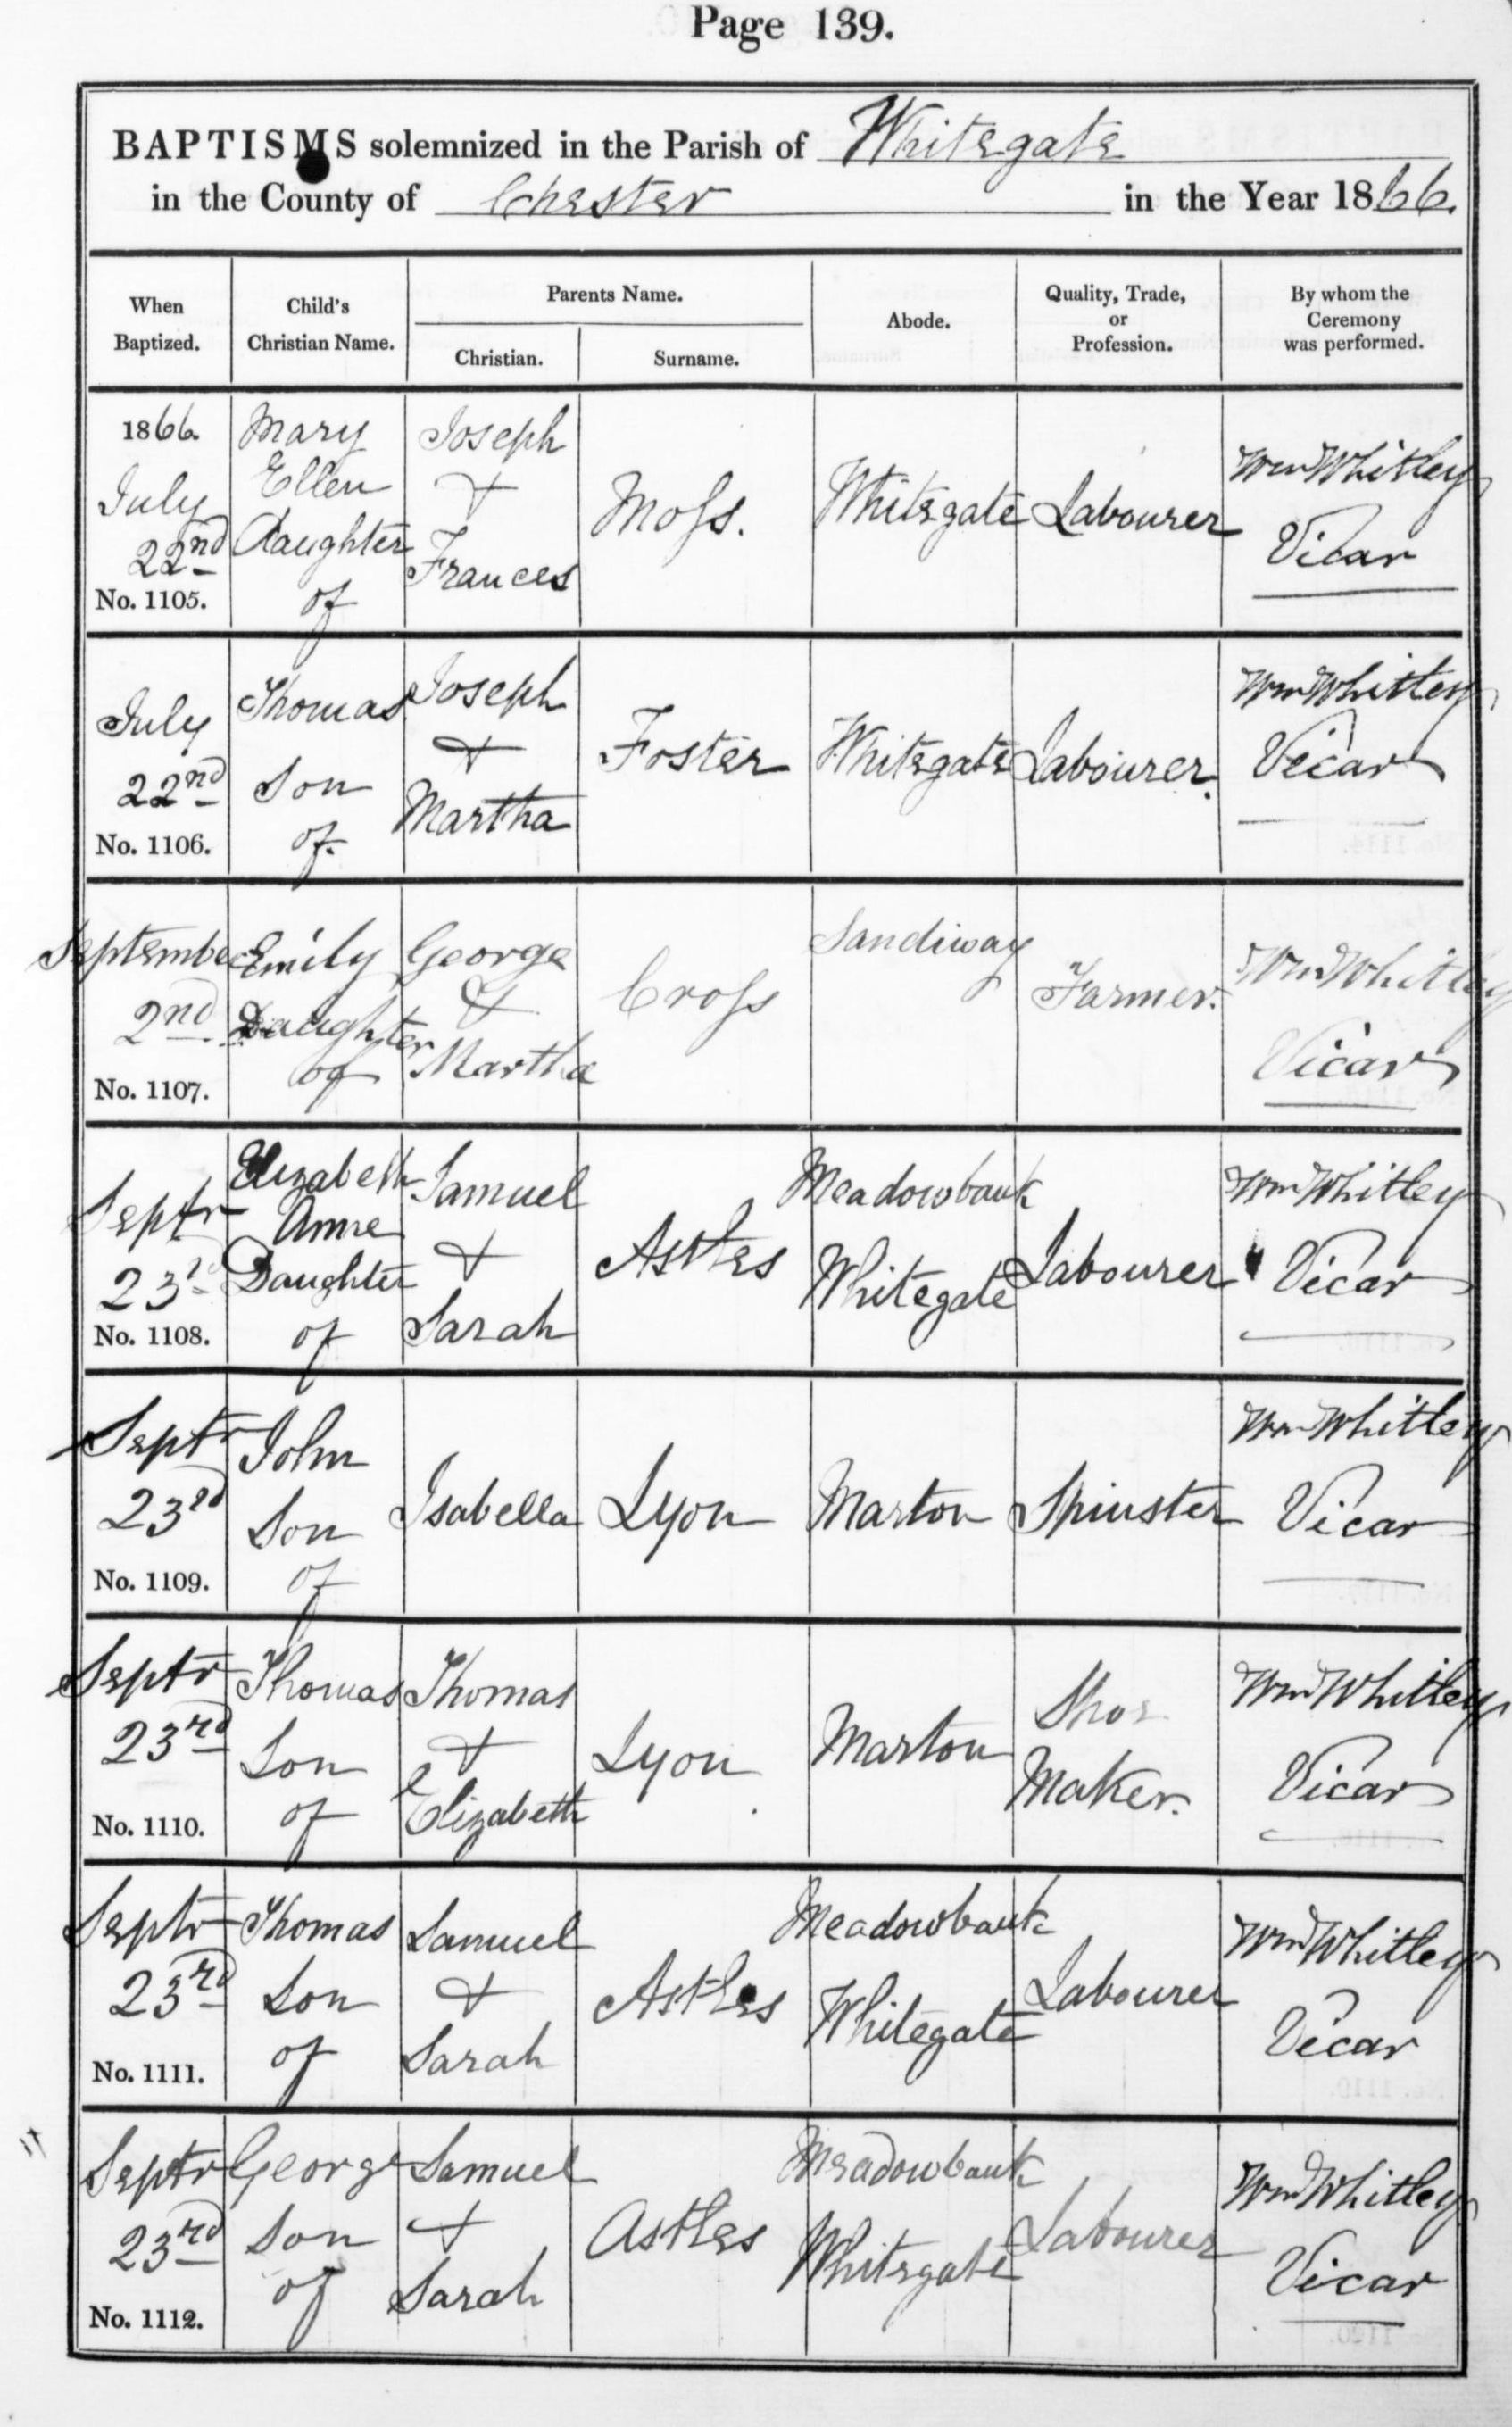 Page 139.
BAPTISMS solemnized in the Parish of Whitegate
in the County of Chester in the Year 1866.
When Baptized.
Child's Christian Name.
Parents Name.
Christian.
Surname.
Abode.
Quality, Trade, or Profession.
By whom the Ceremony was performed.
1866.
July
22nd
No. 1105.
Mary
Ellen
daughter
of
Joseph
+
Frances
Moſs.
Whitegate
Labourer
Wm Whitley
Vicar
July
22nd
No. 1106.
Thomas
Son
of.
Joseph
+
Martha
Foster
Whitegate
Labourer.
Wm Whitley
Vicar
September
2nd.
No. 1107.
Emily
Daughter
of
George
&
Martha
Croſs
Sandiway
Farmer.
Wm Whitley
Vicar
Septr
23rd
No. 1108.
Elizabeth
Anne
Daughter
of
Samuel
+
Sarah
Astles
Meadowbank
Whitegate
Labourer
Wm Whitley
Vicar
Septr
23rd
No. 1109.
John
Son
of
Isabella
Lyon
Marton
Spinster
Wm Whitley
Vicar
Septr
23rd
No. 1110.
Thomas
Son
of
Thomas
+
Elizabeth
Lyon
Marton
Shoe
Maker.
Wm Whitley
Vicar
Septr
23rd
No. 1111.
Thomas
Son
of
Samuel
+
Sarah
Astles
Meadowbank
Whitegate
Labourer
Wm Whitley
Vicar
Septr
23rd
No. 1112.
George
Son
of
Samuel
+
Sarah
Astles
Meadowbank
Whitegate
Labourer
Wm Whitley
Vicar